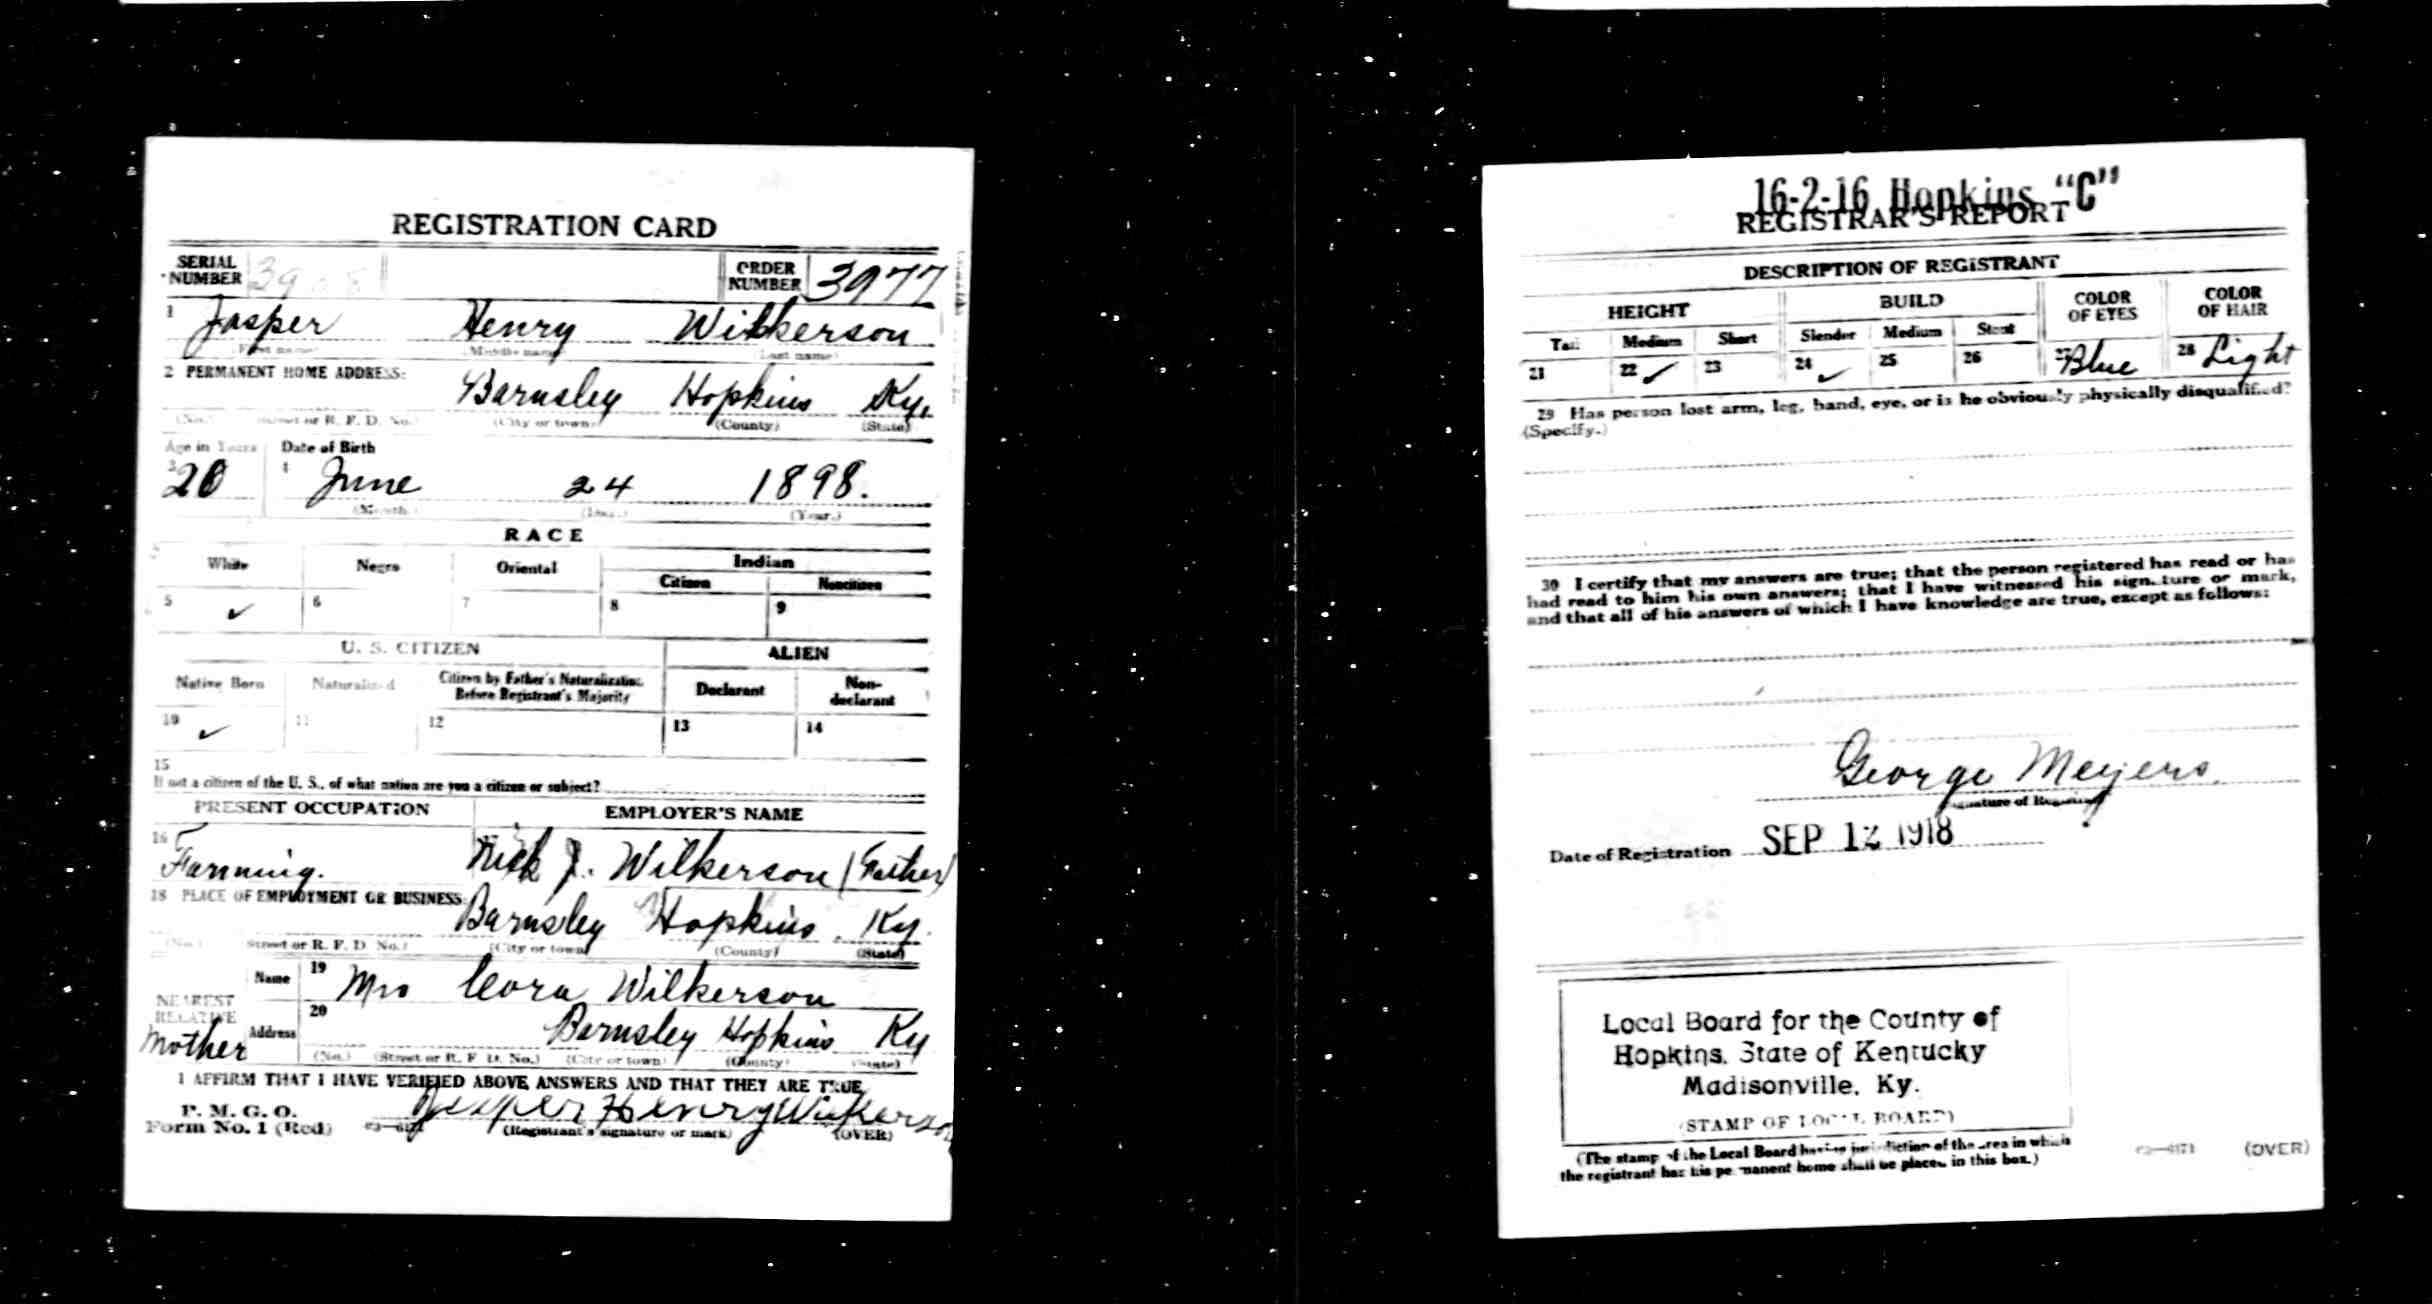 REGISTRATION CARD
SERIAL NUMBER ORDER NUMBER 3977
1 Jasper Henry Wilkerson
(First name) (Middle name) (Last name)
2 PERMANENT HOME ADDRESS:
Barnsley Hopkins Ky.
(No.) (Street or R. F. D. No.) (City or town) (County) (State)
Age in Years Date of Birth
3 20 4 June 24 1898.
(Month.) (Day.) (Year.)
RACE
White Negro Oriental Indian
Citizen Noncitizen
5 ✓ 6 7 8 9
U. S. CITIZEN ALIEN
Native Born Naturalized Citizen by Father's Naturalization Before Registrant's Majority Declarant Non-declarant
10 ✓ 11 12 13 14
15
If not a citizen of the U. S., of what nation are you a citizen or subject?
PRESENT OCCUPATION EMPLOYER'S NAME
16 Farming. 17 J. Wilkerson (Father)
18 PLACE OF EMPLOYMENT OR BUSINESS:
Barnsley Hopkins Ky.
(No.) (Street or R. F. D. No.) (City or town) (County) (State)
NEAREST RELATIVE
Name 19 Mrs Cora Wilkerson
Mother Address 20 Barnsley Hopkins Ky
(No.) (Street or R. F. D. No.) (City or town) (County) (State)
I AFFIRM THAT I HAVE VERIFIED ABOVE ANSWERS AND THAT THEY ARE TRUE
P. M. G. O.
Form No. 1 (Red) Jasper Henry Wilkerson
(Registrant's signature or mark) (OVER)
16-2-16 Hopkins "C"
REGISTRAR'S REPORT
DESCRIPTION OF REGISTRANT
HEIGHT BUILD COLOR OF EYES COLOR OF HAIR
Tall Medium Short Slender Medium Stout
21 22 ✓ 23 24 ✓ 25 26 27 Blue 28 Light
29 Has person lost arm, leg, hand, eye, or is he obviously physically disqualified?
(Specify.)
30 I certify that my answers are true; that the person registered has read or has
had read to him his own answers; that I have witnessed his signature or mark,
and that all of his answers of which I have knowledge are true, except as follows:
George Meyers
(Signature of Registrar)
Date of Registration SEP 12 1918
Local Board for the County of
Hopkins, State of Kentucky
Madisonville, Ky.
(STAMP OF LOCAL BOARD)
(The stamp of the Local Board having jurisdiction of the area in which
the registrant has his permanent home shall be placed in this box.)
03—6171 (OVER)